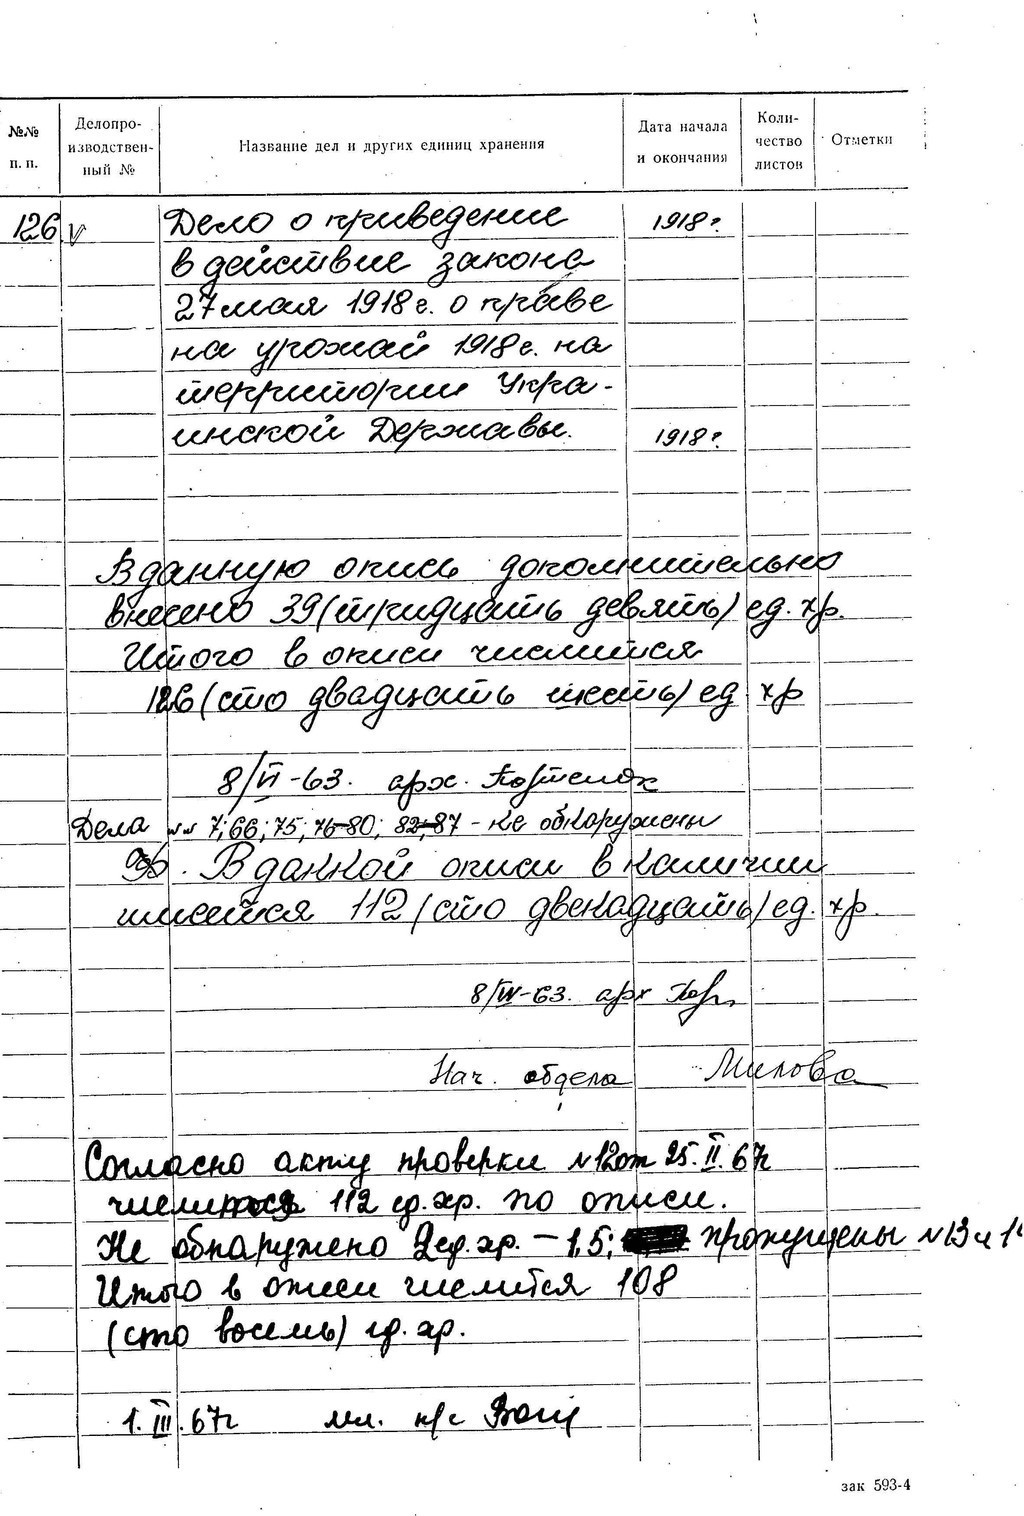 №№ п. п.
Делопро-
изводствен-
ный №
Название дел и других единиц хранения
Дата начала
и окончания
Коли-
чество
листов
Отметки
126 v Дело о приведение 1918 г.
в действие закона
27 мая 1918 г. о праве
на урожай 1918 г. на
территории Укра-
инской Державы. 1918 г.
В данную опись дополнительно
внесено 39 (тридцать девять) ед. хр.
Итого в описи числится
126 (сто двадцать шесть) ед хр
8/VI-63. арх.
Дела №№ 7; 66; 75; 76-80; 82-87 - не обнаружены
В данной описи в наличии
имеется 112 (сто двенадцать) ед. хр.
8/VI-63. арх
Нач. отдела Милова
Согласно акту проверки №12 от 25.II.67г
числится 112 ед. хр. по описи.
Не обнаружено 2 ед. хр. - 1, 5; пропущены №13 и 14
Итого в описи числится 108
(сто восемь) ед. хр.
1.III.67г мл. н/с
зак 593-4